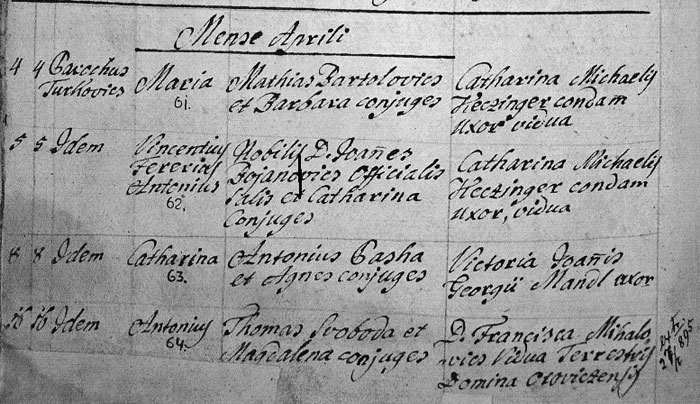 Mense Aprili
4 4 Parochus Turkovics
Maria
61.
Mathias Bartolovics
et Barbara conjuges
Catharina Michaelis
Heczinger condam
uxor vidua
5 5 Idem
Vincentius
Fererius
Antonius
62.
Nobilis D. Joañes
Bojanovics Officialis
Salis et Catharina
Conjuges
Catharina Michaelis
Heczinger condam
uxor, vidua
8 8 Idem
Catharina
63.
Antonius Pasha
et Agnes conjuges
Victoria Joañis
Georgii Mandl uxor
16 16 Idem
Antonius
64.
Thomas Svoboda et
Magdalena conjuges
D. Francisca Mihalo
vics Vidua Terrestris
Domina Oroviczensis